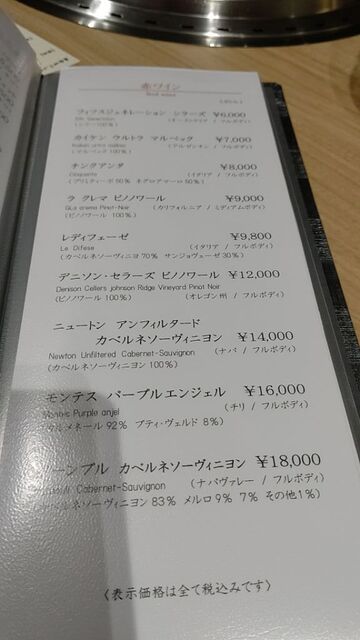 赤ワイン
Red wine
フィフスジェネレーション シラーズ ¥6,000
5th Generation (オーストラリア / フルボディ)
カイケン ウルトラ マルベック ¥7,000
Kaiken ultra malbec (アルゼンチン / フルボディ)
(マルベック 100%)
チンクアンタ ¥8,000
Cinquanta (イタリア / フルボディ)
(プリミティーボ 50% ネグロアマーロ 50%)
ラ グレマ ピノノワール ¥9,000
Pinot-Noir (カリフォルニア / ミディアムボディ)
(ピノノワール 100%)
レディフェーゼ ¥9,800
Le Difese (イタリア / フルボディ)
(カベルネソーヴィニヨン 70% サンジョヴェーゼ 30%)
デニソン・セラーズ ピノノワール ¥12,000
Denison Cellers johnson Ridge Vineyard Pinot Noir
(ピノノワール 100%) (オレゴン州 / フルボディ)
ニュートン アンフィルタード
カベルネソーヴィニヨン ¥14,000
Newton Unfiltered Cabernet-Sauvignon (ナパ / フルボディ)
(カベルネソーヴィニヨン 100%)
モンテス パープルエンジェル ¥16,000
Purple anjel (チリ / フルボディ)
ルメネール 92% プティ・ヴェルド 8%)
ーンブル カベルネソーヴィニヨン ¥18,000
Cabernet-Sauvignon (ナパヴァレー / フルボディ)
ベルネソーヴィニヨン 83% メルロ 9% 7% その他 1%)
〈表示価格は全て税込みです〉